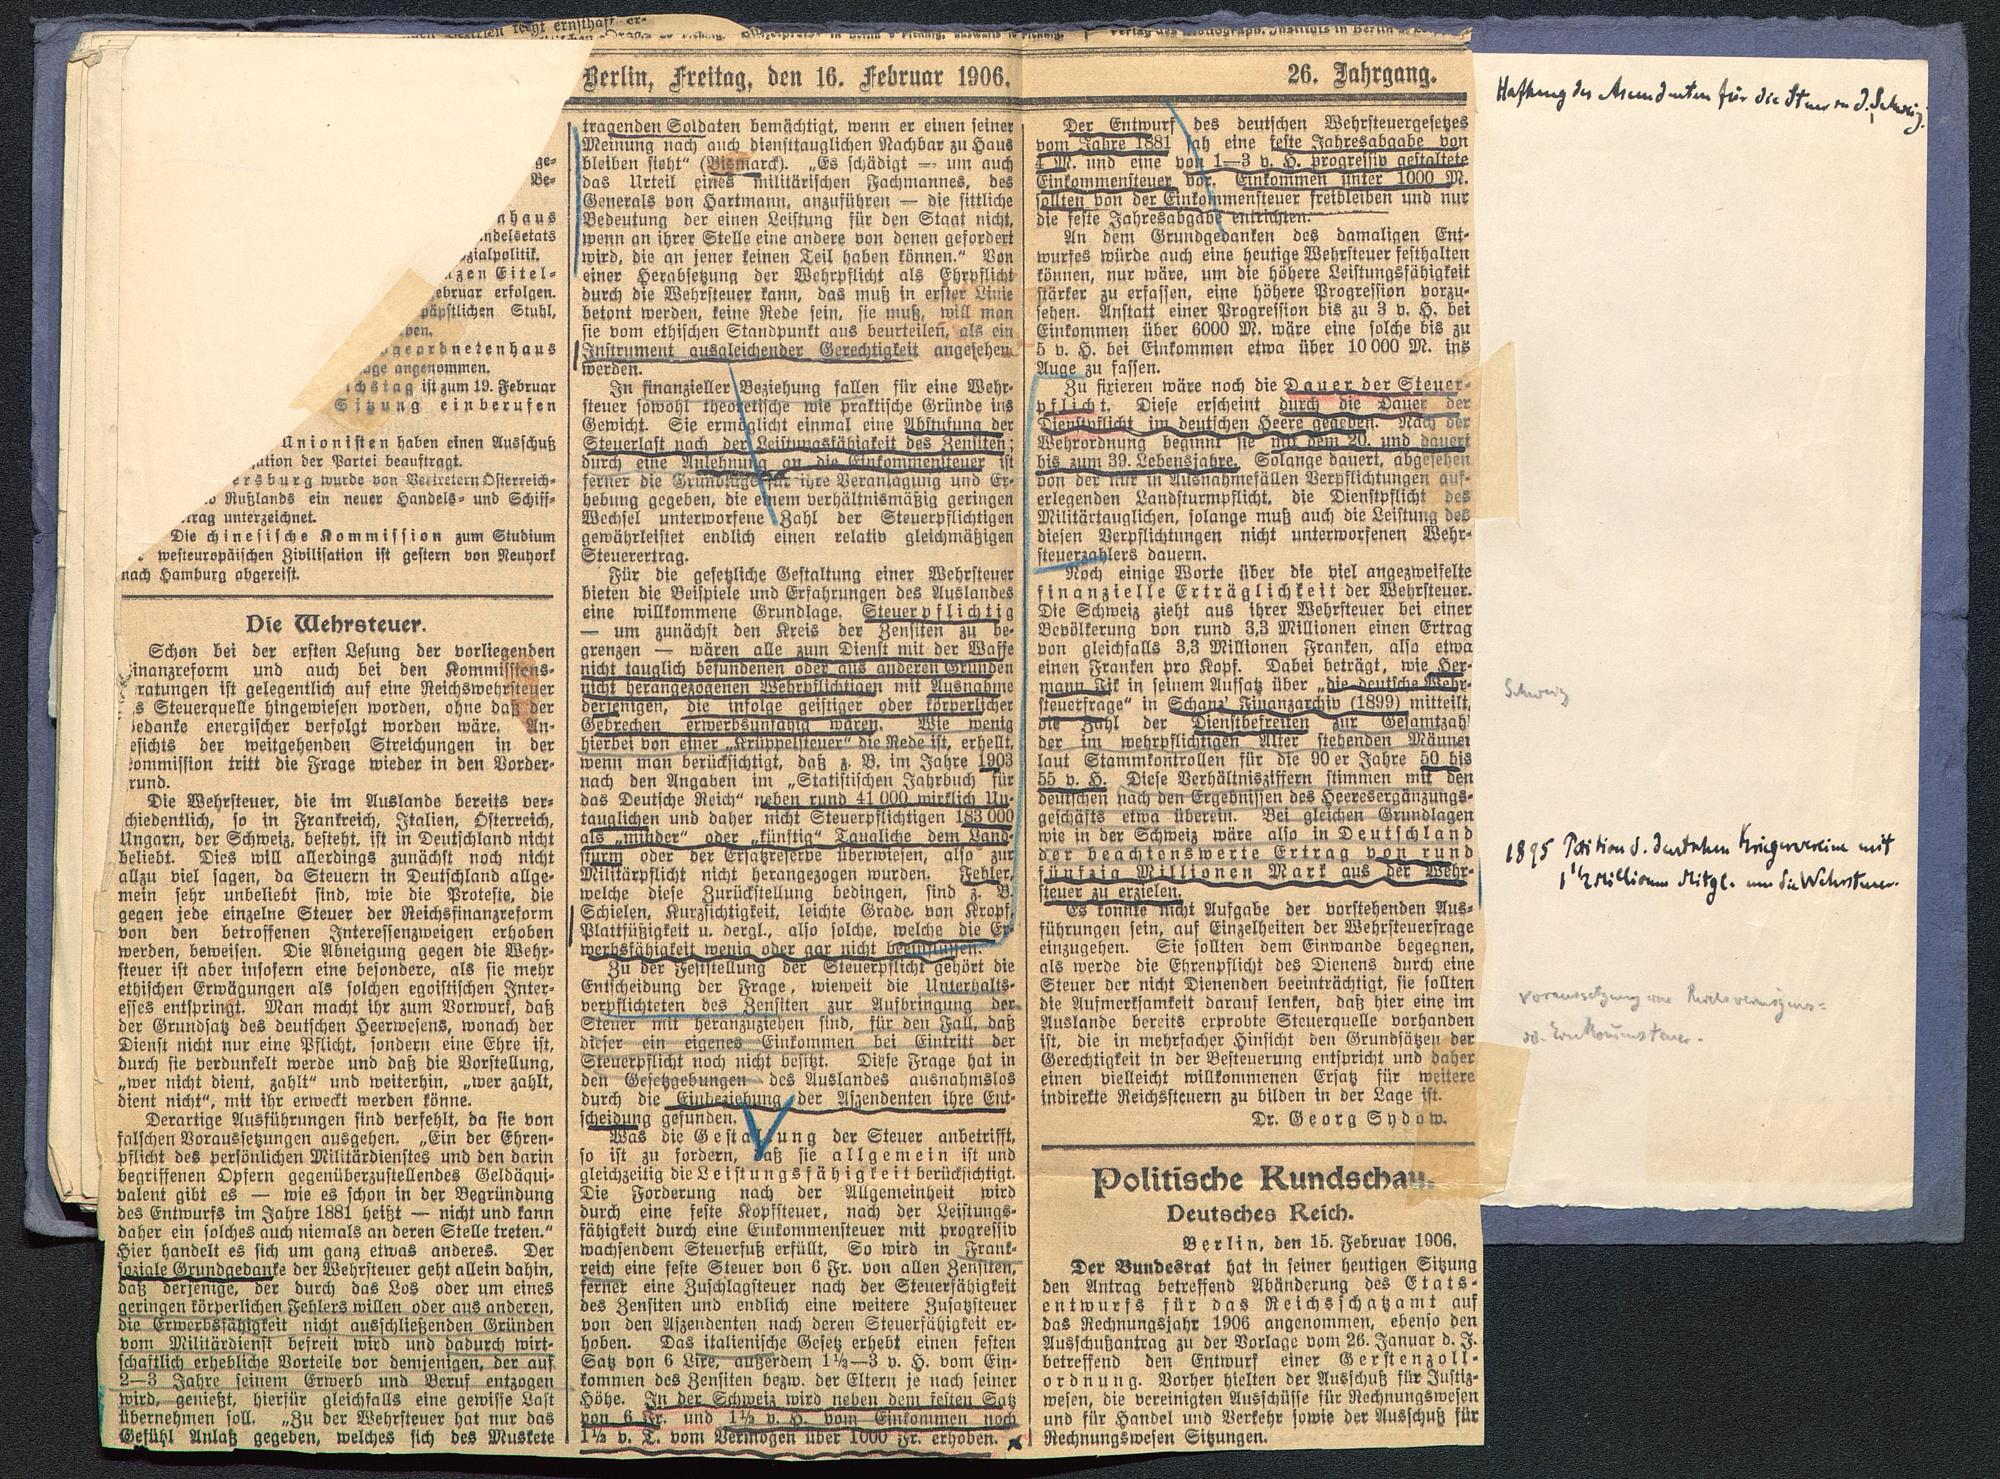 Berlin, Freitag, den 16. Februar 1906.
26. Jahrgang.
ge-
Be-
nhaus
ndelsetats
zialpolitik.
nzen Eitel-
ebruar erfolgen.
päpstlichen Stuhl,
ben.
bgeordnetenhaus
age angenommen.
ichstag ist zum 19. Februar
Sitzung einberufen
Unionisten haben einen Ausschuß
ation der Partei beauftragt.
ersburg wurde von Vertretern Österreich-
Rußlands ein neuer Handels- und Schiff-
trag unterzeichnet.
Die chinesische Kommission zum Studium
westeuropäischen Zivilisation ist gestern von Neuyork
nach Hamburg abgereist.
Die Wehrsteuer.
Schon bei der ersten Lesung der vorliegenden
inanzreform und auch bei den Kommissions-
ratungen ist gelegentlich auf eine Reichswehrsteuer
s Steuerquelle hingewiesen worden, ohne daß der
edanke energischer verfolgt worden wäre. An-
esichts der weitgehenden Streichungen in der
ommission tritt die Frage wieder in den Vorder-
rund.
Die Wehrsteuer, die im Auslande bereits ver-
chiedentlich, so in Frankreich, Italien, Österreich,
Ungarn, der Schweiz, besteht, ist in Deutschland nicht
beliebt. Dies will allerdings zunächst noch nicht
allzu viel sagen, da Steuern in Deutschland allge-
mein sehr unbeliebt sind, wie die Proteste, die
gegen jede einzelne Steuer der Reichsfinanzreform
von den betroffenen Interessenzweigen erhoben
werden, beweisen. Die Abneigung gegen die Wehr-
steuer ist aber insofern eine besondere, als sie mehr
ethischen Erwägungen als solchen egoistischen Inter-
esses entspringt. Man macht ihr zum Vorwurf, daß
der Grundsatz des deutschen Heerwesens, wonach der
Dienst nicht nur eine Pflicht, sondern eine Ehre ist,
durch sie verdunkelt werde und daß die Vorstellung,
„wer nicht dient, zahlt“ und weiterhin, „wer zahlt,
dient nicht“, mit ihr erweckt werden könne.
Derartige Ausführungen sind verfehlt, da sie von
falschen Voraussetzungen ausgehen. „Ein der Ehren-
pflicht des persönlichen Militärdienstes und den darin
begriffenen Opfern gegenüberzustellendes Geldäqui-
valent gibt es — wie es schon in der Begründung
des Entwurfs im Jahre 1881 heißt — nicht und kann
daher ein solches auch niemals an deren Stelle treten.“
Hier handelt es sich um ganz etwas anderes. Der
soziale Grundgedanke der Wehrsteuer geht allein dahin,
daß derjenige, der durch das Los oder um eines
geringen körperlichen Fehlers willen oder aus anderen,
die Erwerbsfähigkeit nicht ausschließenden Gründen
vom Militärdienst befreit wird und dadurch wirt-
schaftlich erhebliche Vorteile vor demjenigen, der auf
2—3 Jahre seinem Erwerb und Beruf entzogen
wird, genießt, hierfür gleichfalls eine gewisse Last
übernehmen soll. „Zu der Wehrsteuer hat nur das
Gefühl Anlaß gegeben, welches sich des Muskete
tragenden Soldaten bemächtigt, wenn er einen seiner
Meinung nach auch diensttauglichen Nachbar zu Haus
bleiben sieht“ (Bismarck). „Es schädigt — um auch
das Urteil eines militärischen Fachmannes, des
Generals von Hartmann, anzuführen — die sittliche
Bedeutung der einen Leistung für den Staat nicht,
wenn an ihrer Stelle eine andere von denen gefordert
wird, die an jener keinen Teil haben können.“ Von
einer Herabsetzung der Wehrpflicht als Ehrpflicht
durch die Wehrsteuer kann, das muß in erster Linie
betont werden, keine Rede sein, sie muß, will man
sie vom ethischen Standpunkt aus beurteilen, als ein
Instrument ausgleichender Gerechtigkeit angesehen
werden.
In finanzieller Beziehung fallen für eine Wehr-
steuer sowohl theoretische wie praktische Gründe ins
Gewicht. Sie ermöglicht einmal eine Abstufung der
Steuerlast nach der Leistungsfähigkeit des Zensiten;
durch eine Anlehnung an die Einkommensteuer ist
ferner die Grundlage für ihre Veranlagung und Er-
hebung gegeben, die einem verhältnismäßig geringen
Wechsel unterworfene Zahl der Steuerpflichtigen
gewährleistet endlich einen relativ gleichmäßigen
Steuerertrag.
Für die gesetzliche Gestaltung einer Wehrsteuer
bieten die Beispiele und Erfahrungen des Auslandes
eine willkommene Grundlage. Steuerpflichtig
— um zunächst den Kreis der Zensiten zu be-
grenzen — wären alle zum Dienst mit der Waffe
nicht tauglich befundenen oder aus anderen Gründen
nicht herangezogenen Wehrpflichtigen mit Ausnahme
derjenigen, die infolge geistiger oder körperlicher
Gebrechen erwerbsunfähig wären. Wie wenig
hierbei von einer „Krüppelsteuer“ die Rede ist, erhellt,
wenn man berücksichtigt, daß z. B. im Jahre 1903
nach den Angaben im „Statistischen Jahrbuch für
das Deutsche Reich“ neben rund 41 000 wirklich Un-
tauglichen und daher nicht Steuerpflichtigen 183 000
als „minder“ oder „künftig“ Taugliche dem Land-
sturm oder der Ersatzreserve überwiesen, also zur
Militärpflicht nicht herangezogen wurden. Fehler,
welche diese Zurückstellung bedingen, sind z. B.
Schielen, Kurzsichtigkeit, leichte Grade von Kropf,
Plattfüßigkeit u. dergl., also solche, welche die Er-
werbsfähigkeit wenig oder gar nicht beeinflussen.
Zu der Feststellung der Steuerpflicht gehört die
Entscheidung der Frage, wieweit die Unterhalts-
verpflichteten des Zensiten zur Aufbringung der
Steuer mit heranzuziehen sind, für den Fall, daß
dieser ein eigenes Einkommen bei Eintritt der
Steuerpflicht noch nicht besitzt. Diese Frage hat in
den Gesetzgebungen des Auslandes ausnahmslos
durch die Einbeziehung der Aszendenten ihre Ent-
scheidung gefunden.
Was die Gestaltung der Steuer anbetrifft,
so ist zu fordern, daß sie allgemein ist und
gleichzeitig die Leistungsfähigkeit berücksichtigt.
Die Forderung nach der Allgemeinheit wird
durch eine feste Kopfsteuer, nach der Leistungs-
fähigkeit durch eine Einkommensteuer mit progressiv
wachsendem Steuerfuß erfüllt. So wird in Frank-
reich eine feste Steuer von 6 Fr. von allen Zensiten,
ferner eine Zuschlagsteuer nach der Steuerfähigkeit
des Zensiten und endlich eine weitere Zusatzsteuer
von den Aszendenten nach deren Steuerfähigkeit er-
hoben. Das italienische Gesetz erhebt einen festen
Satz von 6 Lire, außerdem 1½—3 v. H. vom Ein-
kommen des Zensiten bezw. der Eltern je nach seiner
Höhe. In der Schweiz wird neben dem festen Satz
von 6 Fr. und 1½ v. H. vom Einkommen noch
1½ v. T. vom Vermögen über 1000 Fr. erhoben.
Der Entwurf des deutschen Wehrsteuergesetzes
vom Jahre 1881 sah eine feste Jahresabgabe von
4 M. und eine von 1—3 v. H. progressiv gestaltete
Einkommensteuer vor. Einkommen unter 1000 M.
sollten von der Einkommensteuer freibleiben und nur
die feste Jahresabgabe entrichten.
An dem Grundgedanken des damaligen Ent-
wurfes würde auch eine heutige Wehrsteuer festhalten
können, nur wäre, um die höhere Leistungsfähigkeit
stärker zu erfassen, eine höhere Progression vorzu-
sehen. Anstatt einer Progression bis zu 3 v. H. bei
Einkommen über 6000 M. wäre eine solche bis zu
5 v. H. bei Einkommen etwa über 10 000 M. ins
Auge zu fassen.
Zu fixieren wäre noch die Dauer der Steuer-
pflicht. Diese erscheint durch die Dauer der
Dienstpflicht im deutschen Heere gegeben. Nach der
Wehrordnung beginnt sie mit dem 20. und dauert
bis zum 39. Lebensjahre. Solange dauert, abgesehen
von der nur in Ausnahmefällen Verpflichtungen auf-
erlegenden Landsturmpflicht, die Dienstpflicht des
Militärtauglichen, solange muß auch die Leistung des
diesen Verpflichtungen nicht unterworfenen Wehr-
steuerzahlers dauern.
Noch einige Worte über die viel angezweifelte
finanzielle Erträglichkeit der Wehrsteuer.
Die Schweiz zieht aus ihrer Wehrsteuer bei einer
Bevölkerung von rund 3,3 Millionen einen Ertrag
von gleichfalls 3,3 Millionen Franken, also etwa
einen Franken pro Kopf. Dabei beträgt, wie Her-
mann in seinem Aufsatz über „die deutsche Wehr-
steuerfrage“ in Schanz' Finanzarchiv (1899) mitteilt,
die Zahl der Dienstbefreiten zur Gesamtzahl
der im wehrpflichtigen Alter stehenden Männer
laut Stammkontrollen für die 90 er Jahre 50 bis
55 v. H. Diese Verhältnisziffern stimmen mit den
deutschen nach den Ergebnissen des Heeresergänzungs-
geschäfts etwa überein. Bei gleichen Grundlagen
wie in der Schweiz wäre also in Deutschland
der beachtenswerte Ertrag von rund
fünfzig Millionen Mark aus der Wehr-
steuer zu erzielen.
Es konnte nicht Aufgabe der vorstehenden Aus-
führungen sein, auf Einzelheiten der Wehrsteuerfrage
einzugehen. Sie sollten dem Einwande begegnen,
als werde die Ehrenpflicht des Dienens durch eine
Steuer der nicht Dienenden beeinträchtigt, sie sollten
die Aufmerksamkeit darauf lenken, daß hier eine im
Auslande bereits erprobte Steuerquelle vorhanden
ist, die in mehrfacher Hinsicht den Grundsätzen der
Gerechtigkeit in der Besteuerung entspricht und daher
einen vielleicht willkommenen Ersatz für weitere
indirekte Reichssteuern zu bilden in der Lage ist.
Dr. Georg Sydow.
Politische Rundschau.
Deutsches Reich.
Berlin, den 15. Februar 1906.
Der Bundesrat hat in seiner heutigen Sitzung
den Antrag betreffend Abänderung des Etats-
entwurfs für das Reichsschatzamt auf
das Rechnungsjahr 1906 angenommen, ebenso den
Ausschußantrag zu der Vorlage vom 26. Januar d. J.
betreffend den Entwurf einer Gerstenzoll-
ordnung. Vorher hielten der Ausschuß für Justiz-
wesen, die vereinigten Ausschüsse für Rechnungswesen
und für Handel und Verkehr sowie der Ausschuß für
Rechnungswesen Sitzungen.
Haftung des Ascendenten für die Steuer in d. Schweiz.
Schweiz
1895 Petition d. deutschen Kriegervereine mit
1½ Millionen Mitgl. um die Wehrsteuer.
Voraussetzung eine Reichsvermögens-
od. Einkommensteuer.